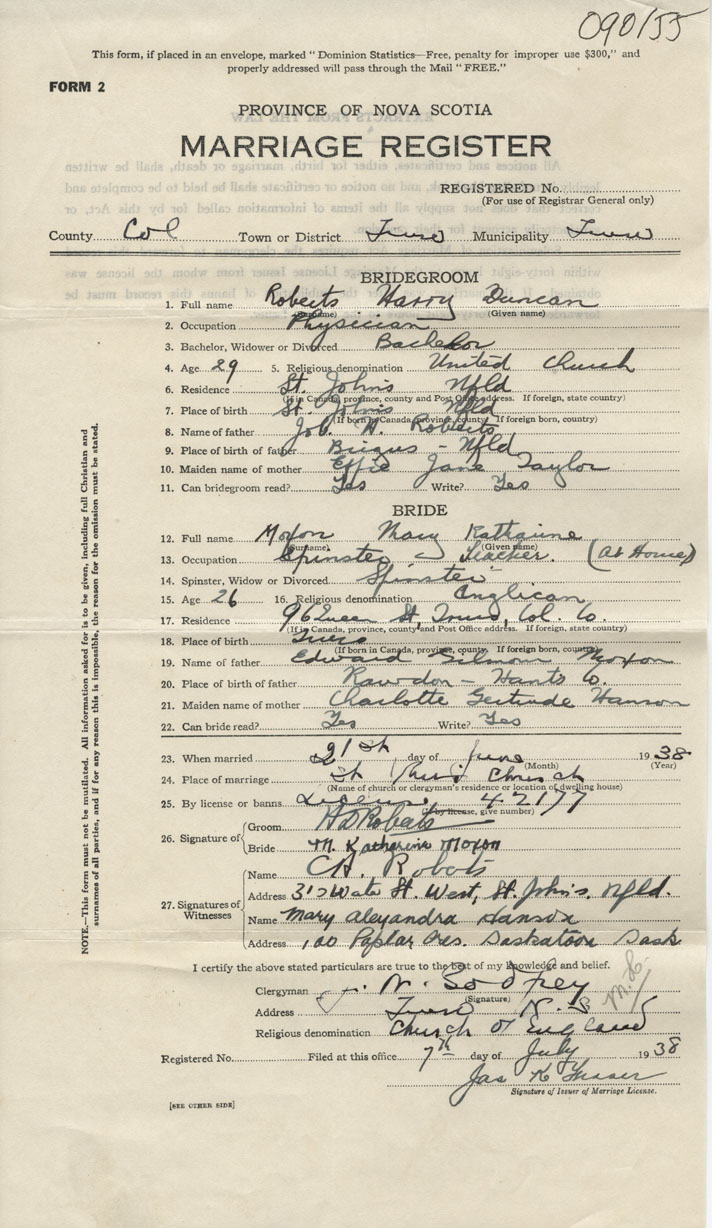 090155
This form, if placed in an envelope, marked "Dominion Statistics—Free, penalty for improper use $300," and
properly addressed will pass through the Mail "FREE."
FORM 2
PROVINCE OF NOVA SCOTIA
MARRIAGE REGISTER
REGISTERED No.
(For use of Registrar General only)
County Col Town or District Truro Municipality Truro
BRIDEGROOM
1. Full name Roberts Harry Duncan
(Surname) (Given name)
2. Occupation Physician
3. Bachelor, Widower or Divorced Bachelor
4. Age 29 5. Religious denomination United Church
6. Residence St. John's Nfld
(If in Canada, province, county and Post Office address. If foreign, state country)
7. Place of birth St. John's Nfld
(If born in Canada, province, county. If foreign, country)
8. Name of father Job. H. Roberts
9. Place of birth of father Brigus - Nfld
10. Maiden name of mother Effie Jane Taylor
11. Can bridegroom read? Yes Write? Yes
BRIDE
12. Full name Moxon Mary Katharine
(Surname) (Given name)
13. Occupation Spinster - Teacher. (At Home)
14. Spinster, Widow or Divorced Spinster
15. Age 26 16. Religious denomination Anglican
17. Residence 96 Queen St, Truro, Col. Co.
(If in Canada, province, county and Post Office address. If foreign, state country)
18. Place of birth Truro
(If born in Canada, province, county. If foreign, country)
19. Name of father Edward Moxon
20. Place of birth of father Rawdon - Hants Co.
21. Maiden name of mother Charlotte Gertrude Hanson
22. Can bride read? Yes Write? Yes
23. When married 21st day of June 1938
(Month) (Year)
24. Place of marriage St Church
(Name of church or clergyman's residence or location of dwelling house)
25. By license or banns License 42177
(If by license, give number)
26. Signature of
Groom HDRoberts
Bride M. Katharine Moxon
27. Signatures of Witnesses
Name CH. Roberts
Address 312 Water St. West, St. John's. Nfld.
Name Mary Alexandra Hanson
Address 100 Poplar Cres. Saskatoon Sask
I certify the above stated particulars are true to the best of my knowledge and belief.
Clergyman W. Godfrey
(Signature)
Address Truro N.S
Religious denomination Church of England
Registered No. Filed at this office 7th day of July 1938
Jas K Fraser
Signature of Issuer of Marriage License.
[SEE OTHER SIDE]
NOTE.—This form must not be mutilated. All information asked for is to be given, including full Christian and
surnames of all parties, and if for any reason this is impossible, the reason for the omission must be stated.